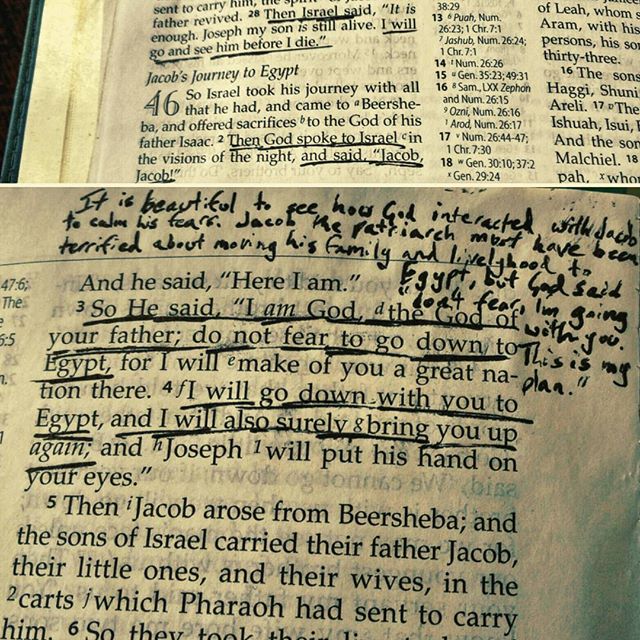 sent to carry him, the spirit of
father revived. 28 Then Israel said, "It is
enough. Joseph my son is still alive. I will
go and see him before I die."
Jacob's Journey to Egypt
46 So Israel took his journey with all
that he had, and came to a Beershe-
ba, and offered sacrifices b to the God of his
father Isaac. 2 Then God spoke to Israel c in
the visions of the night, and said, "Jacob,
Jacob!"
38:29
13 Puah, Num.
26:23; 1 Chr. 7:1
7 Jashub, Num. 26:24;
1 Chr. 7:1
14 t Num. 26:26
15 u Gen. 35:23; 49:31
16 8 Sam., LXX Zephon
and Num. 26:15
9 Ozni, Num. 26:16
1 Arod, Num. 26:17
17 v Num. 26:44-47;
1 Chr. 7:30
18 w Gen. 30:10; 37:2
x Gen. 29:24
of Leah, whom
Aram, with his
persons, his so
thirty-three.
16 The sons
Haggi, Shuni
Areli. 17 The
Ishuah, Isui,
And the son
Malchiel. 18
pah, x whom
It is beautiful to see how God interacted with Jacob
to calm his fears. Jacob the patriarch must have been
terrified about moving his family and livelyhood to
Egypt, but God said
"don't fear, I'm going
with you.
This is my
plan."
47:6;
The
6:5
n.
And he said, "Here I am."
3 So He said, "I am God, d the God of
your father; do not fear to go down to
Egypt, for I will e make of you a great na-
tion there. 4 f I will go down with you to
Egypt, and I will also surely g bring you up
again; and h Joseph 1 will put his hand on
your eyes."
5 Then i Jacob arose from Beersheba; and
the sons of Israel carried their father Jacob,
their little ones, and their wives, in the
2 carts j which Pharaoh had sent to carry
him. 6 So they took their